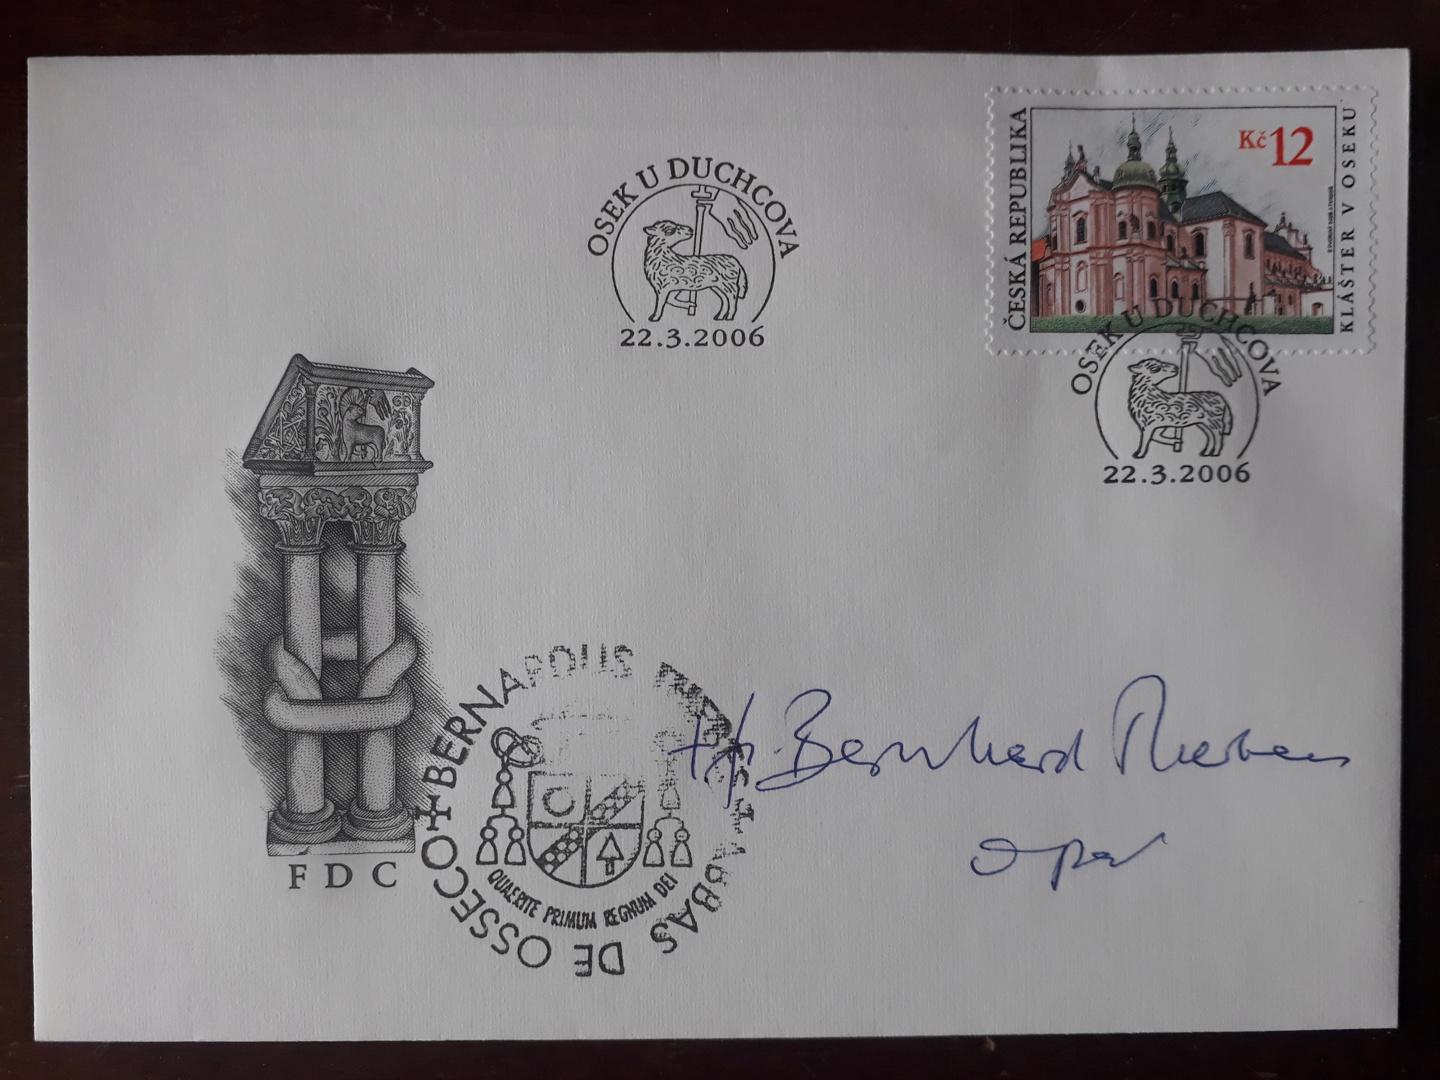 OSEK U DUCHCOVA
22.3.2006
ČESKÁ REPUBLIKA
Kč 12
KLÁŠTER V OSEKU
OSEK U DUCHCOVA
22.3.2006
FDC
ABBAS DE OSSECO + BERNARDUS
QUAERITE PRIMUM REGNUM DEI
Bernhard